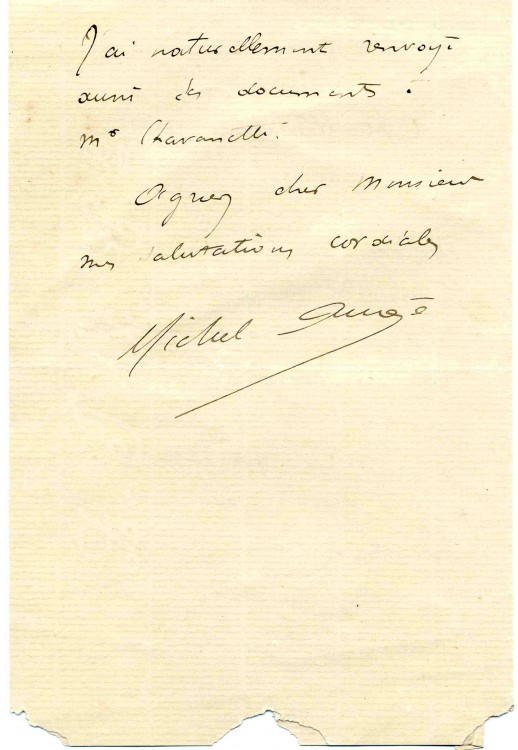 J'ai naturellement renvoyé
aussi les documents à
Mr Chavanetti.
Agréez cher Monsieur
mes salutations cordiales
Michel